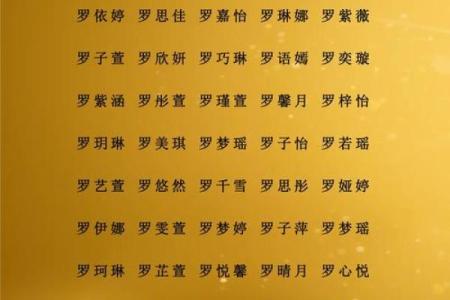 罗依婷 罗思佳 罗嘉怡 罗琳娜 罗紫薇
罗子萱 罗欣妍 罗巧琳 罗语嫣 罗奕璇
罗紫涵 罗彤萱 罗瑾萱 罗馨月 罗梓怡
罗玥琳 罗美琪 罗梦瑶 罗子怡 罗若瑶
罗艺萱 罗悠然 罗千雪 罗思彤 罗娅婷
罗伊娜 罗雯萱 罗梦婷 罗子萍 罗梦瑶
罗珂琳 罗芷萱 罗悦馨 罗晴月 罗心悦